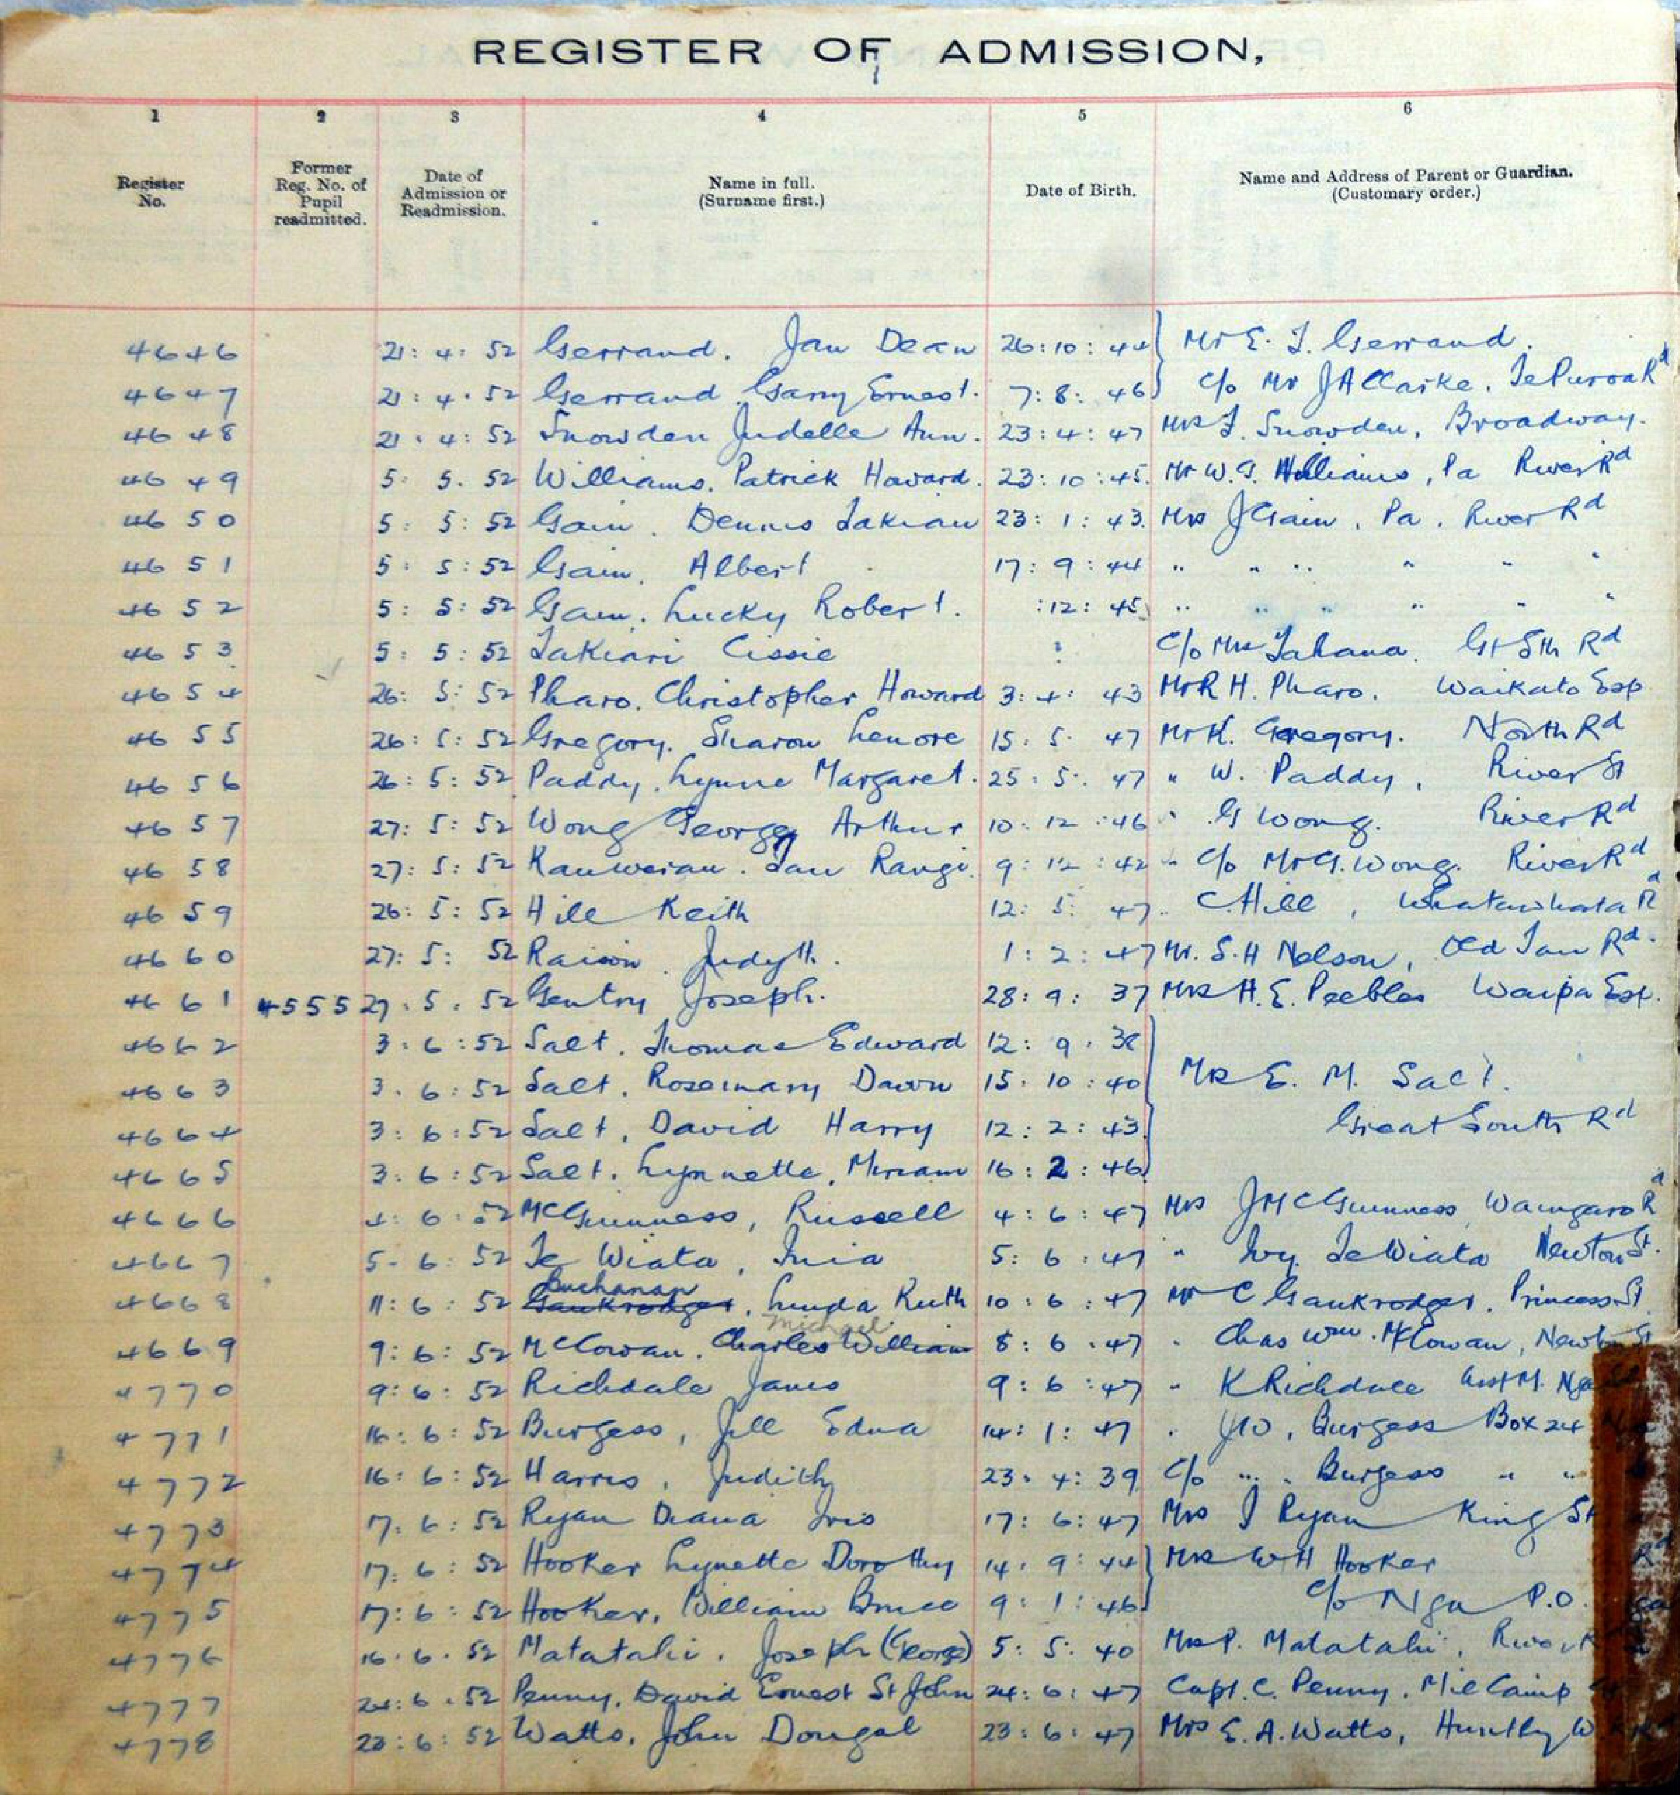 REGISTER OF ADMISSION,
1 2 3 4 5 6
Register No. Former Reg. No. of Pupil readmitted. Date of Admission or Readmission. Name in full. (Surname first.) Date of Birth. Name and Address of Parent or Guardian. (Customary order.)
4646 21:4:52 Gerrand. Jan Dean 26:10:44 Mr E. J. Gerrand.
4647 21:4.52 Gerrand Garry Ernest. 7:8:46 c/o Mr J A Clarke. Te Puroa Rd
4648 21.4:52 Snowden Judelle Ann. 23:4:47 Mrs J. Snowden, Broadway.
4649 5:5.52 Williams. Patrick Howard. 23:10:45. Mr W. J. Williams, Pa River Rd
4650 5:5:52 Gain. Dennis 23:1:43. Mrs J Gain. Pa. River Rd
4651 5:5:52 Gain. Albert 17:9:44 " " " " " "
4652 5:5:52 Gain. Lucky Robert. :12:45 " " " " " "
4653 5:5:52 Takiari Cissie : C/o Mrs Tahana. Gt Sth Rd
4654 26:5:52 Pharo. Christopher Howard 3:4:43 Mr R H. Pharo. Waikato Esp
4655 26:5:52 Gregory. Sharon Lenore 15:5:47 Mr K. Gregory. North Rd
4656 26:5:52 Paddy. Lynne Margaret. 25:5:47 " W. Paddy, River St
4657 27:5:52 Wong George Arthur 10:12:46 " G Wong. River Rd
4658 27:5:52 Rangi. 9:12:42 " c/o Mr G. Wong. River Rd
4659 26:5:52 Hill Keith 12:5:47 " C. Hill, Whatawhata Rd
4660 27:5:52 Raison. Judyth. 1:2:47 Mr. S. H Nelson, Old Tau Rd.
4661 4555 27.5.52 Gentry Joseph. 28:9:37 Mrs H. E. Peebles Waipa Esp.
4662 3:6:52 Salt. Thomas Edward 12:9.38
4663 3.6:52 Salt. Rosemary Dawn 15:10:40 Mr E. M. Salt.
4664 3:6:52 Salt, David Harry 12:2:43 Great South Rd
4665 3:6:52 Salt. Lynnette, Miriam 16:2:46
4666 4:6:52 McGuinness, Russell 4:6:47 Mrs J McGuinness Waingaro Rd
4667 5-6:52 Te Wiata, Inia 5:6:47 " Ivy Te Wiata Newton St.
Buchanan
4668 11:6:52 Gaukrodger, Lynda Ruth 10:6:47 Mr C Gaukrodger. Princess St
Michael
4669 9:6:52 McCowan. Charles William 8:6:47 " Chas Wm. McCowan, Newton St
4770 9:6:52 Richdale James 9:6:47 " K Richdale
4771 16:6:52 Burgess, Jill Edna 14:1:47 " Burgess Box 24
4772 16:6:52 Harris, Judith 23.4:39 c/o " " Burgess " "
4773 17.6:52 Ryan Diana Iris 17:6:47 Mrs J Ryan King St
4774 17.6:52 Hooker Lynette Dorothy 14.9:44 Mrs W H Hooker
4775 17:6:52 Hooker, William Bruce 9:1:46 c/o Nga P.O.
4776 16.6.52 Matatahi. Joseph (George) 5:5:40 Mrs P. Matatahi,
4777 24:6.52 Penny. David Ernest St John 24:6:47 Capt. C. Penny. Mil Camp
4778 23:6:52 Watts. John Dougal 23:6:47 Mrs E. A. Watts, Huntly W